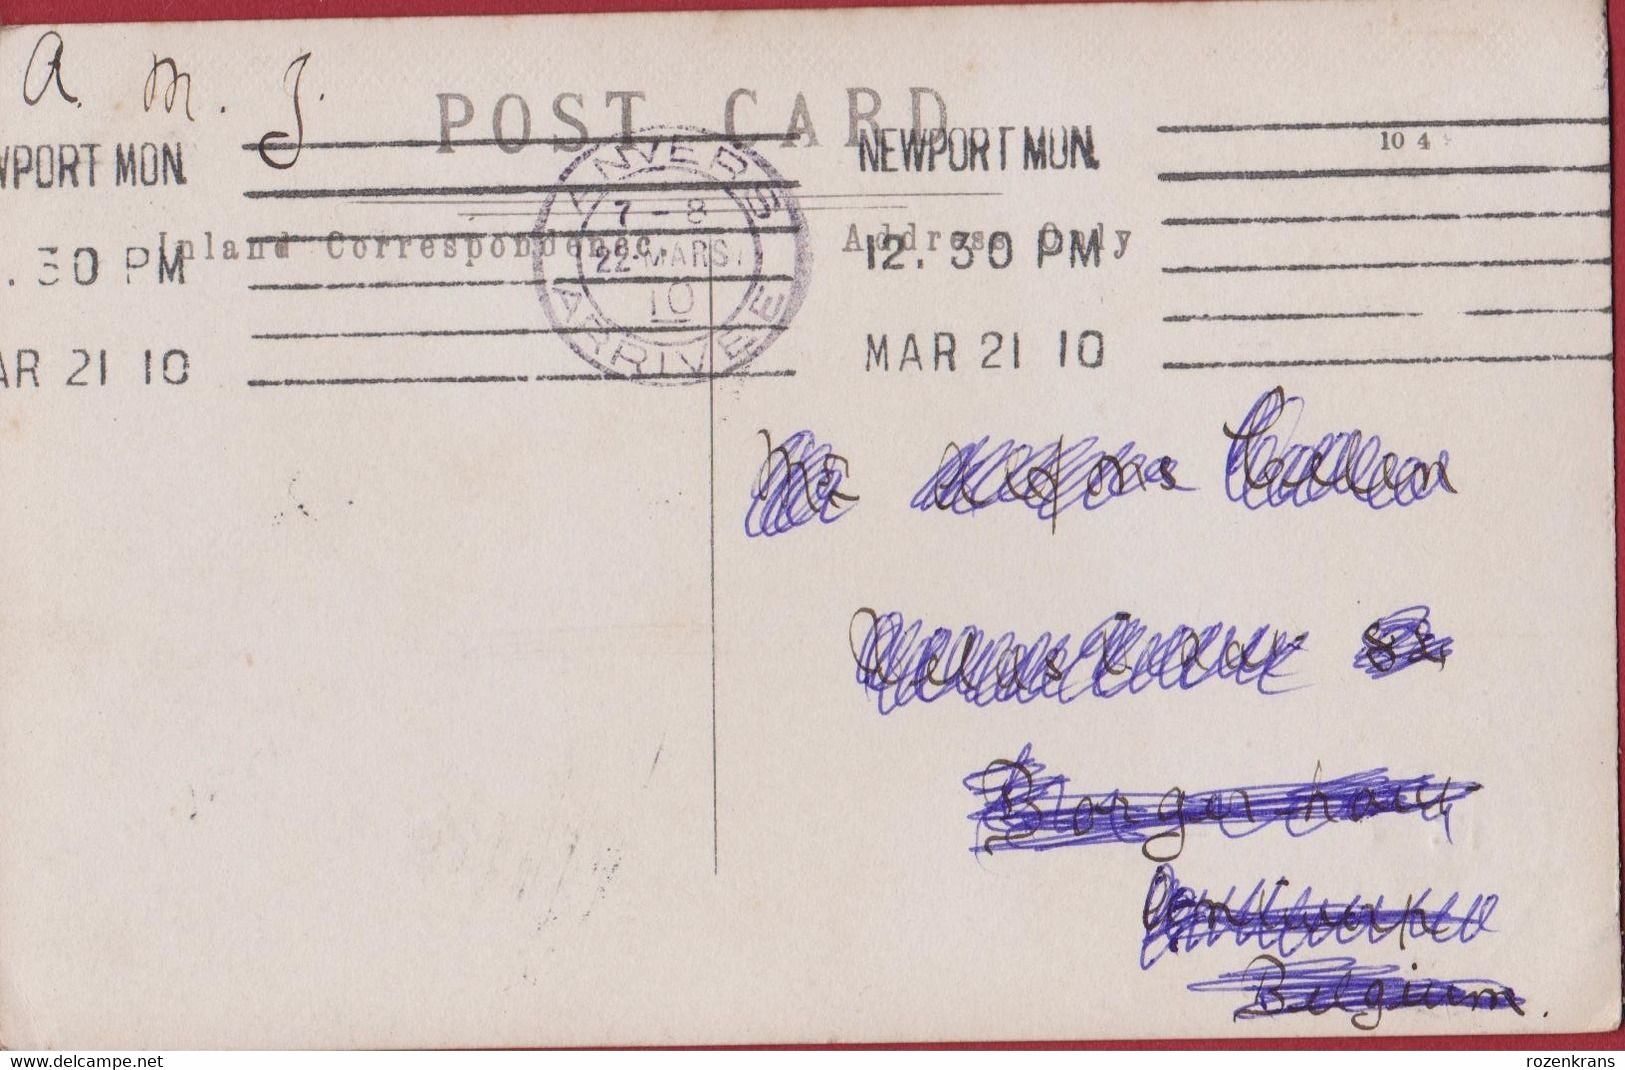 A. M. J.
POST CARD
10 4
WPORT MON.
NEWPORT MON.
ENVERS
7-8
22 MARS
10
ARRIVEE
Inland Correspondence.
Address Only
.30 PM
12.30 PM
AR 21 10
MAR 21 10
Mr Alfons
82
Borgerhout
Belgium.
delcampe.net
rozenkrans